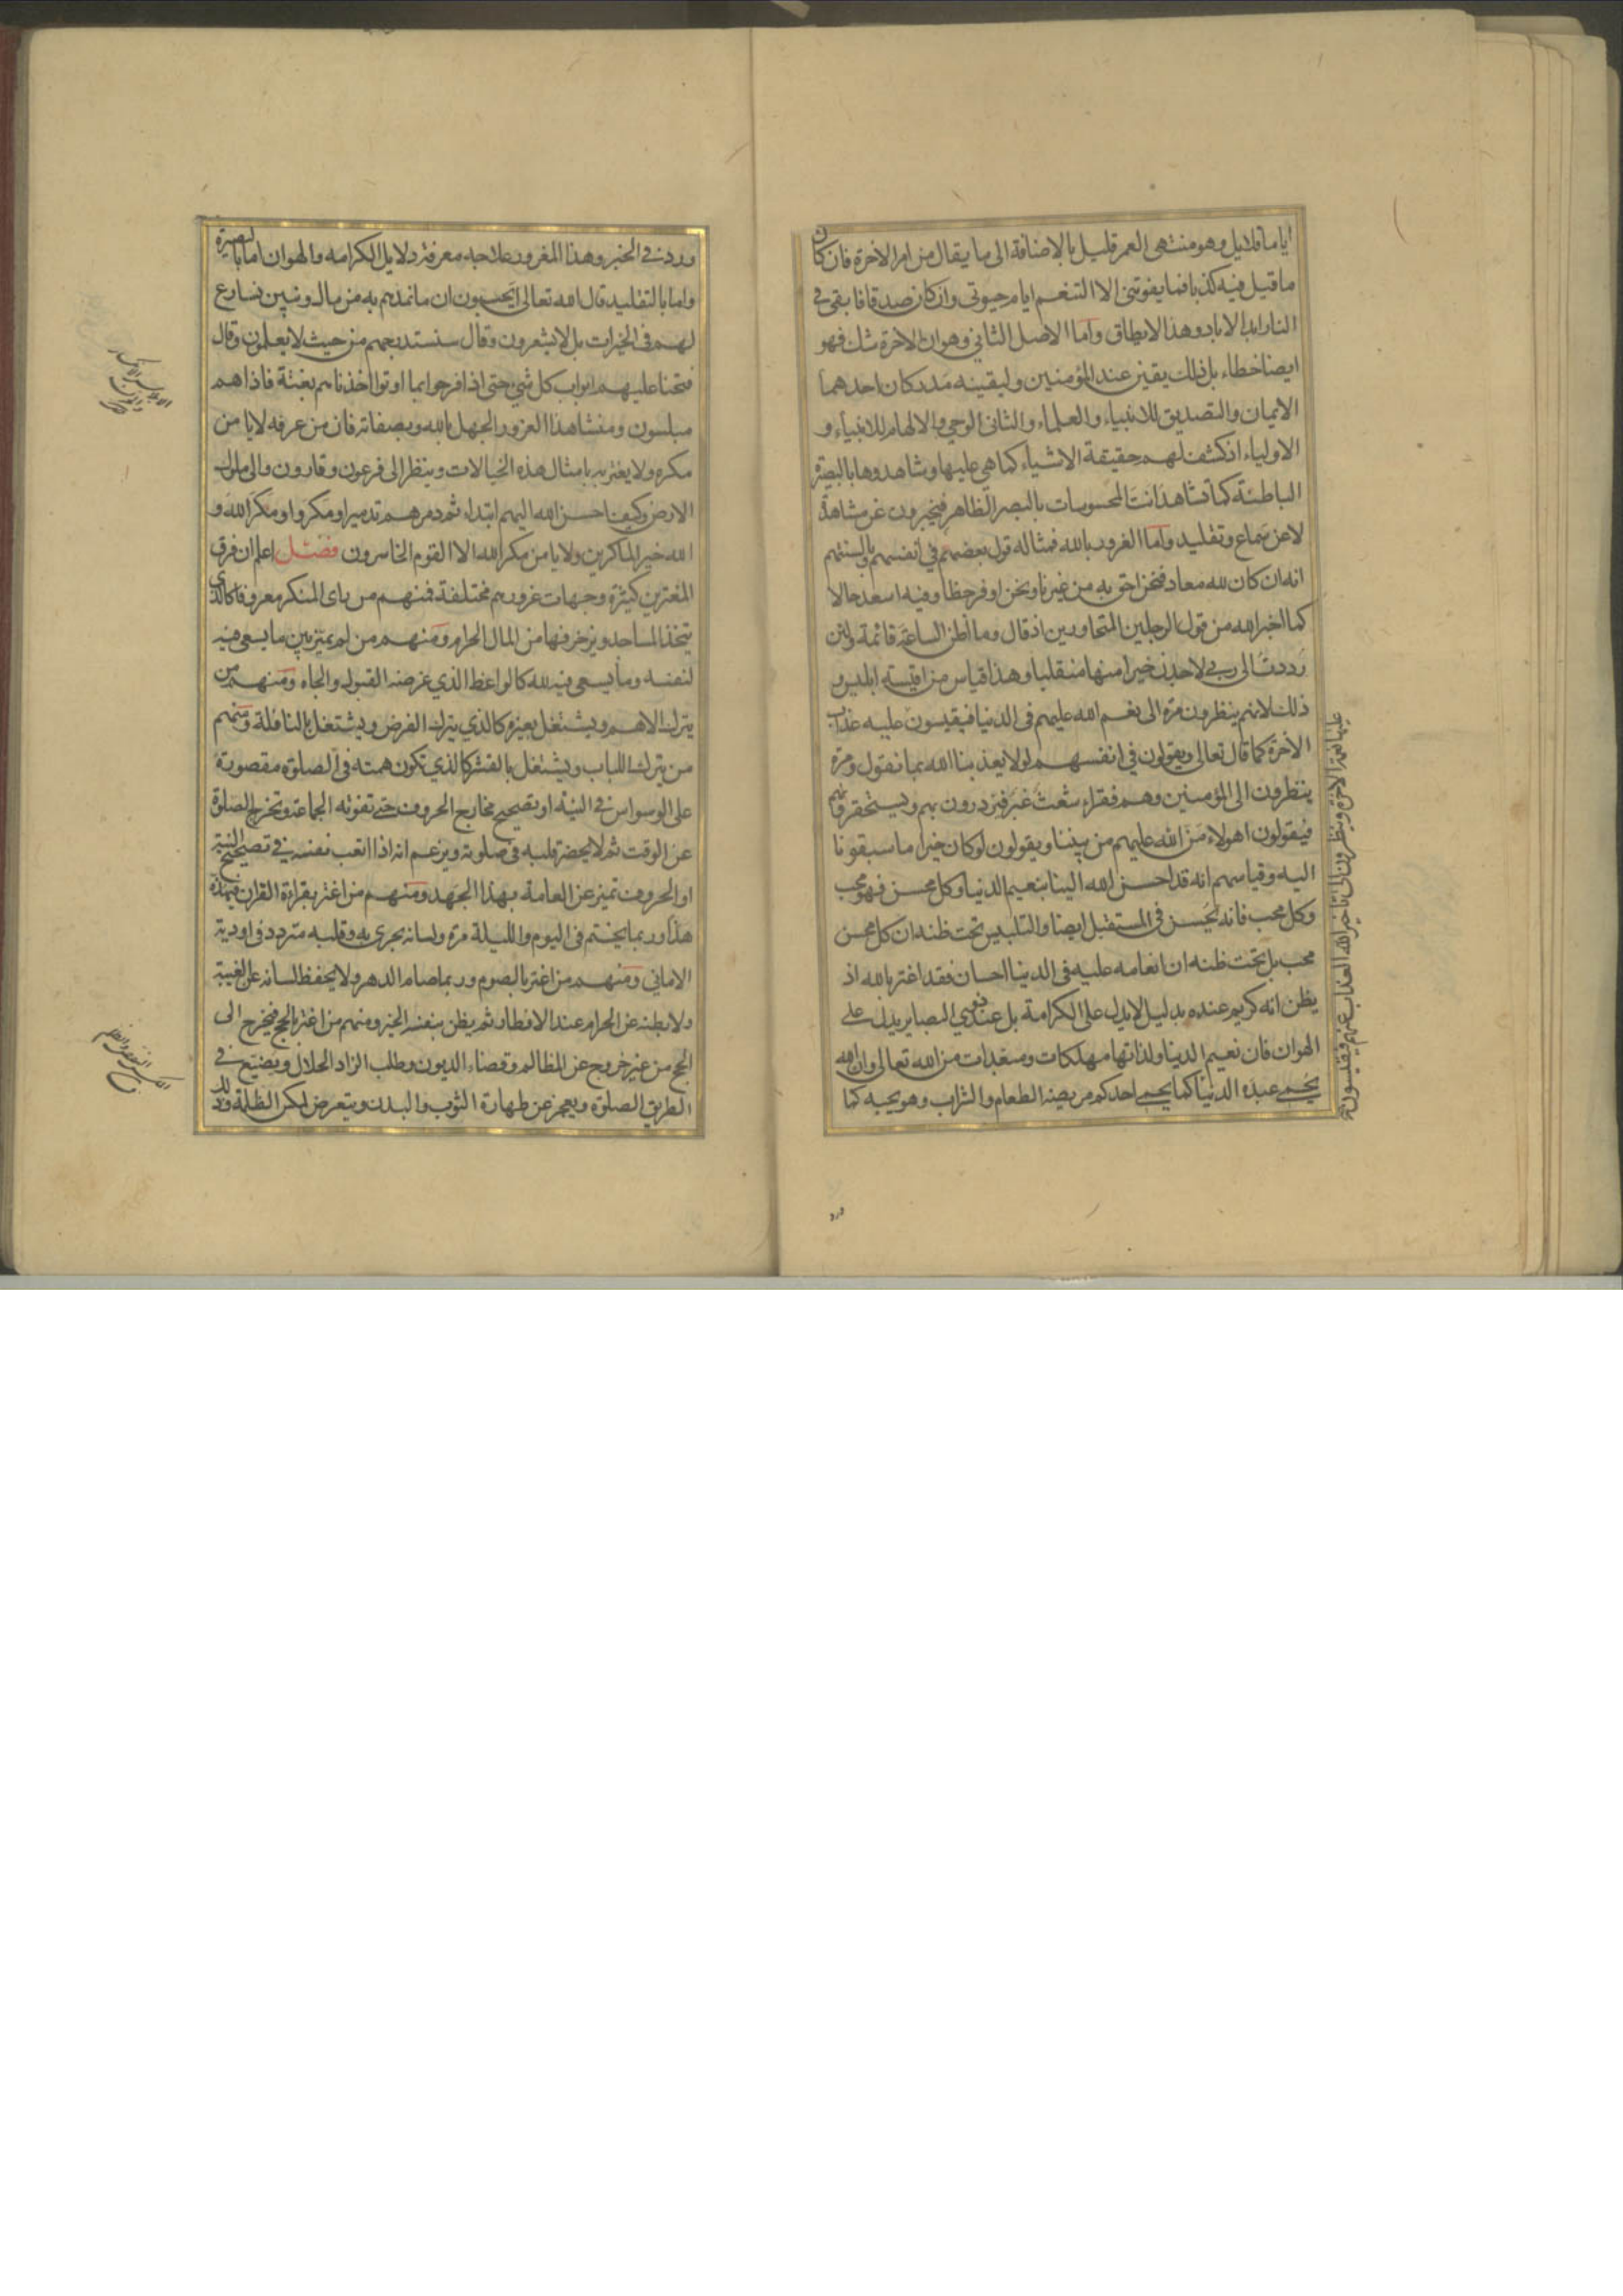 اياما قلايل وهو منتهى العمر قليل بالاضافة الى ما يقال من امر الاخرة فان كان
ما قيل فيه كذبا فما يفوتنى الا التنعم ايام حيوتى وان كان صدقا فابقى فى
النار ابد الاباد وهذا لا يطاق واما الاصل الثانى وهو ان الاخرة شك فهو
ايضا خطاء بل ذلك يقين عند المؤمنين وليقينه مدركان احدهما
الايمان والتصديق للانبياء والعلماء والثانى الوحى والالهام للانبياء و
الاولياء اذ كشف لهم حقيقة الاشياء كما هى عليها وشاهدوها بالبصيرة
الباطنة كما تشاهد انت المحسوسات بالبصر الظاهر فيخبرون عن مشاهدة
لا عن سماع وتقليد واما الغرور بالله فمثاله قول بعضهم فى انفسهم وبالسنتهم
انه ان كان لله معاد فنحن احق به من غيرنا ونحن اوفر حظا وفيه اسعد حالا
كما اخبر الله من قول الرجلين المتحاورين اذ قال وما اظن الساعة قائمة ولئن
رددت الى ربى لاجدن خيرا منها منقلبا وهذا قياس من اقيسة ابليس و
ذلك لانهم ينظرون مرة الى نعم الله عليهم فى الدنيا فيقيسون عليه عذاب
الاخرة كما قال تعالى ويقولون فى انفسهم لولا يعذبنا الله بما نقول ومرة
ينظرون الى المؤمنين وهم فقراء شعث غبر فيزدرون بهم ويستحقرونهم
فيقولون اهولاء من الله عليهم من بيننا ويقولون لو كان خيرا ما سبقونا
اليه وقياسهم انه قد احسن الله الينا بنعيم الدنيا وكل محسن فهو محب
وكل محب فانه يحسن فى المستقبل ايضا والتلبيس تحت ظنه ان كل محسن
محب بل تحت ظنه ان انعامه عليه فى الدنيا احسان فقد اغتر بالله اذ
يظن انه كريم عنده بدليل لا يدل على الكرامة بل عند ذوى البصاير يدل على
الهوان فان نعيم الدنيا ولذاتها مهلكات ومبعدات من الله تعالى وان الله
يحمى عبده الدنيا كما يحمى احدكم مريضه الطعام والشراب وهو يحبه كما
عليها نعمة الاخرة وينظرون الى تاخير الله العذاب عنهم فيقيسون عليه
ورد
وردت فى الخبر وهذا المغرور علاجه معرفة دلايل الكرامه والهوان اما بالبصيرة
واما بالتقليد قال الله تعالى ايحسبون ان ما نمدهم به من مال وبنين نسارع
لهم فى الخيرات بل لا يشعرون وقال سنستدرجهم من حيث لا يعلمون وقال
فتحنا عليهم ابواب كل شئ حتى اذا فرحوا بما اوتوا اخذناهم بغتة فاذا هم
مبلسون ومنشا هذا الغرور الجهل بالله وبصفاته فان من عرفه لا يامن
مكره ولا يغتر به بامثال هذه الخيالات وينظر الى فرعون وقارون والى ملوك
الارض وكيف احسن الله اليهم ابتداء ثم دمرهم تدميرا ومكروا ومكر الله و
الله خير الماكرين ولا يامن مكر الله الا القوم الخاسرون فصل اعلم ان فرق
المغترين كثيرة وجهات غرورهم مختلفة فمنهم من راى المنكر معروفا كالذى
يتخذ المساجد ويزخرفها من المال الحرام ومنهم من لم يميز بين ما يسعى فيه
لنفسه وما يسعى فيه لله كالواعظ الذى غرضه القبول والجاه ومنهم من
يترك الاهم ويشتغل بغيره كالذى يترك الفرض ويشتغل بالنافلة ومنهم
من يترك اللباب ويشتغل بالقشر كالذى تكون همته فى الصلوة مقصورة
على الوسواس فى النية او تصحيح مخارج الحروف حتى تفوته الجماعة وتخرج الصلوة
عن الوقت ثم لا يحضر قلبه فى صلوته ويزعم انه اذا اتعب نفسه فى تصحيح النية
او الحروف تميز عن العامة بهذا الجهد ومنهم من اغتر بقراءة القران فيهذه
هذا وربما يختم فى اليوم والليلة مرة ولسانه يجرى به وقلبه متردد فى اودية
الامانى ومنهم من اغتر بالصوم وربما صام الدهر ولا يحفظ لسانه عن الغيبة
ولا بطنه عن الحرام عند الافطار ثم يظن بنفسه الخير ومنهم من اغتر بالحج فيخرج الى
الحج من غير خروج عن المظالم وقضاء الديون وطلب الزاد الحلال ويضيع فى
الطريق الصلوة ويعجز عن طهارة الثوب والبدن ويتعرض لمكر الظلمة